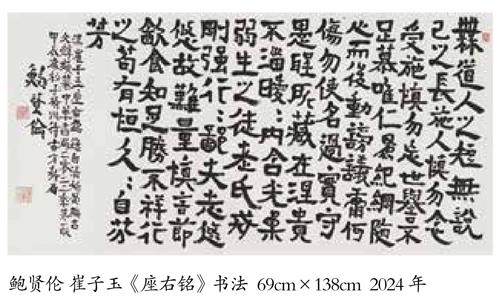 無道人之短無說
己之長施人慎勿念
受施慎勿忘世譽不
足慕唯仁爲紀綱隱
心而後動謗議庸何
傷勿使名過實守
愚聖所臧在涅貴
不淄曖:内含光柔
弱生之徒老氏戒
剛強行:鄙夫志悠
悠故難量慎言節
飲食知足勝不祥行
之苟有恒久:自芬
芳
漢崔子玉座右銘
鮑賢倫
鲍贤伦 崔子玉《座右铭》书法 69cm×138cm 2024 年